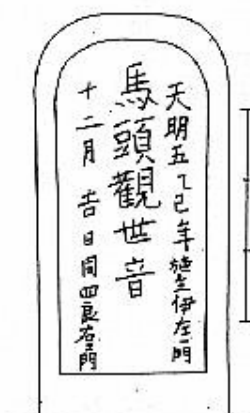 天明五乙巳年施主伊左ェ門
馬頭觀世音
十二月吉日同四良右ェ門